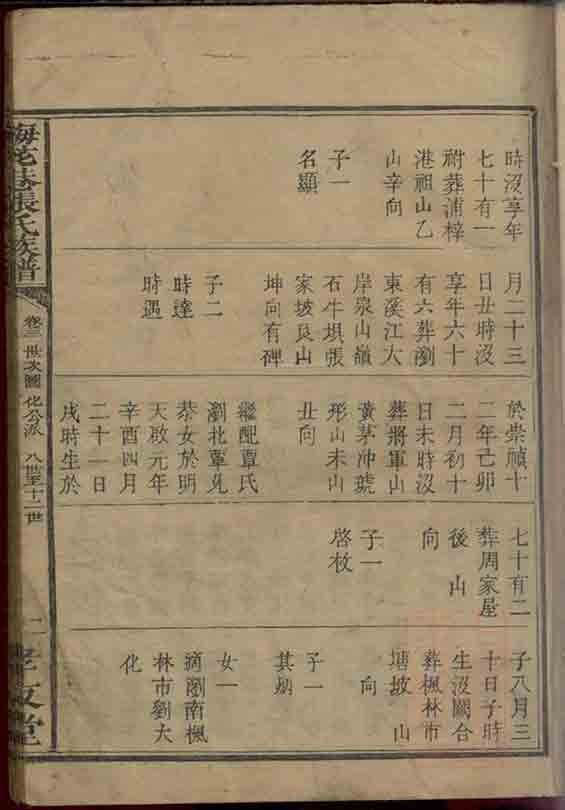 時沒享年
七十有一
祔葬浦梓
港祖山乙
山辛向
子一
名顯
月二十三
日丑時沒
享年六十
有六葬瀏
東溪江大
岸泉山嶺
石牛塅張
家坡艮山
坤向有碑
子二
時達
時遇
於崇禎十
二年己卯
二月初十
日未時沒
葬將軍山
黃茅冲號
形山未山
丑向
繼配覃氏
瀏北覃
恭女於明
天啟元年
辛酉四月
二十一日
戌時生於
七十有二
葬周家屋
後山
向
子一
啓枚
子八月三
十日子時
生沒闕合
葬楓林市
塘坡山
向
子一
其炳
女一
適瀏南楓
林市劉大
化
梅花巷張氏族譜
卷三世次圖化公派 八世至十二世
孝友堂